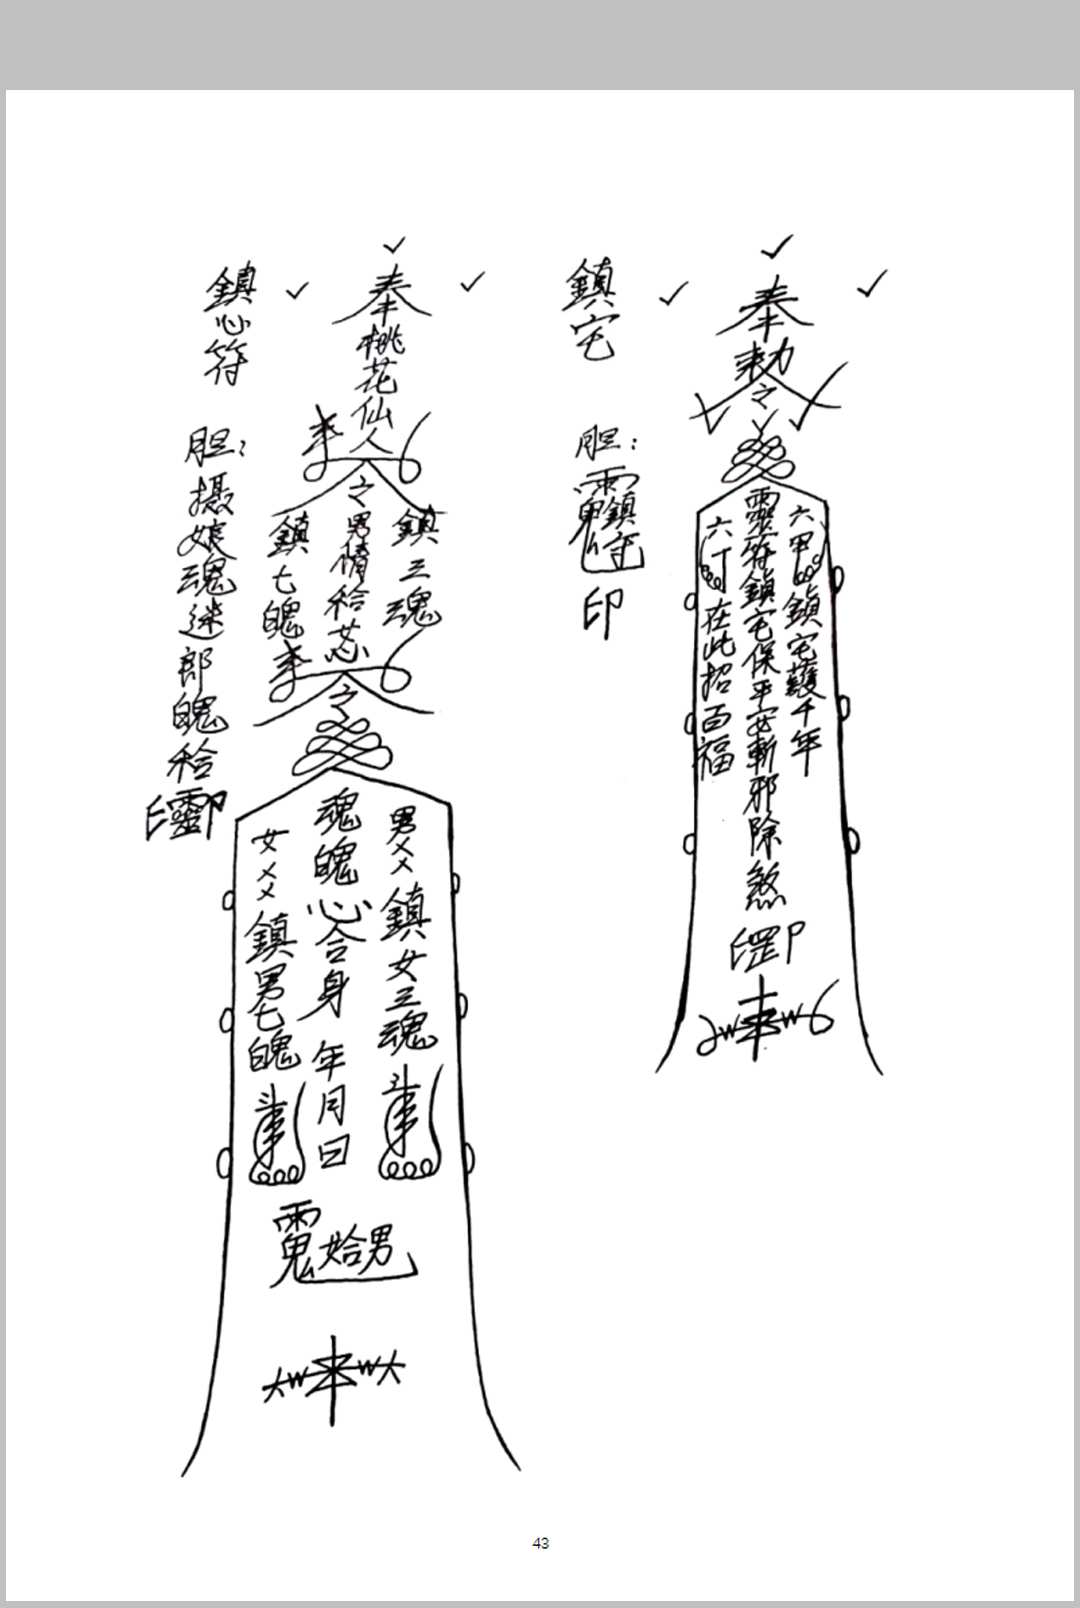 鎮宅
胆：
鎮守
印
奉
勅
令
六甲鎮宅護千年
靈符鎮宅保平安斬邪除煞
六丁在此招百福
印罡
鎮心符
胆：
摄娘魂迷郎魄
印靈
奉
桃花仙人
令
鎮三魂
男情
鎮七魄
令
男××鎮女三魂
魂魄心合身 年月日
女××鎮男七魄
43